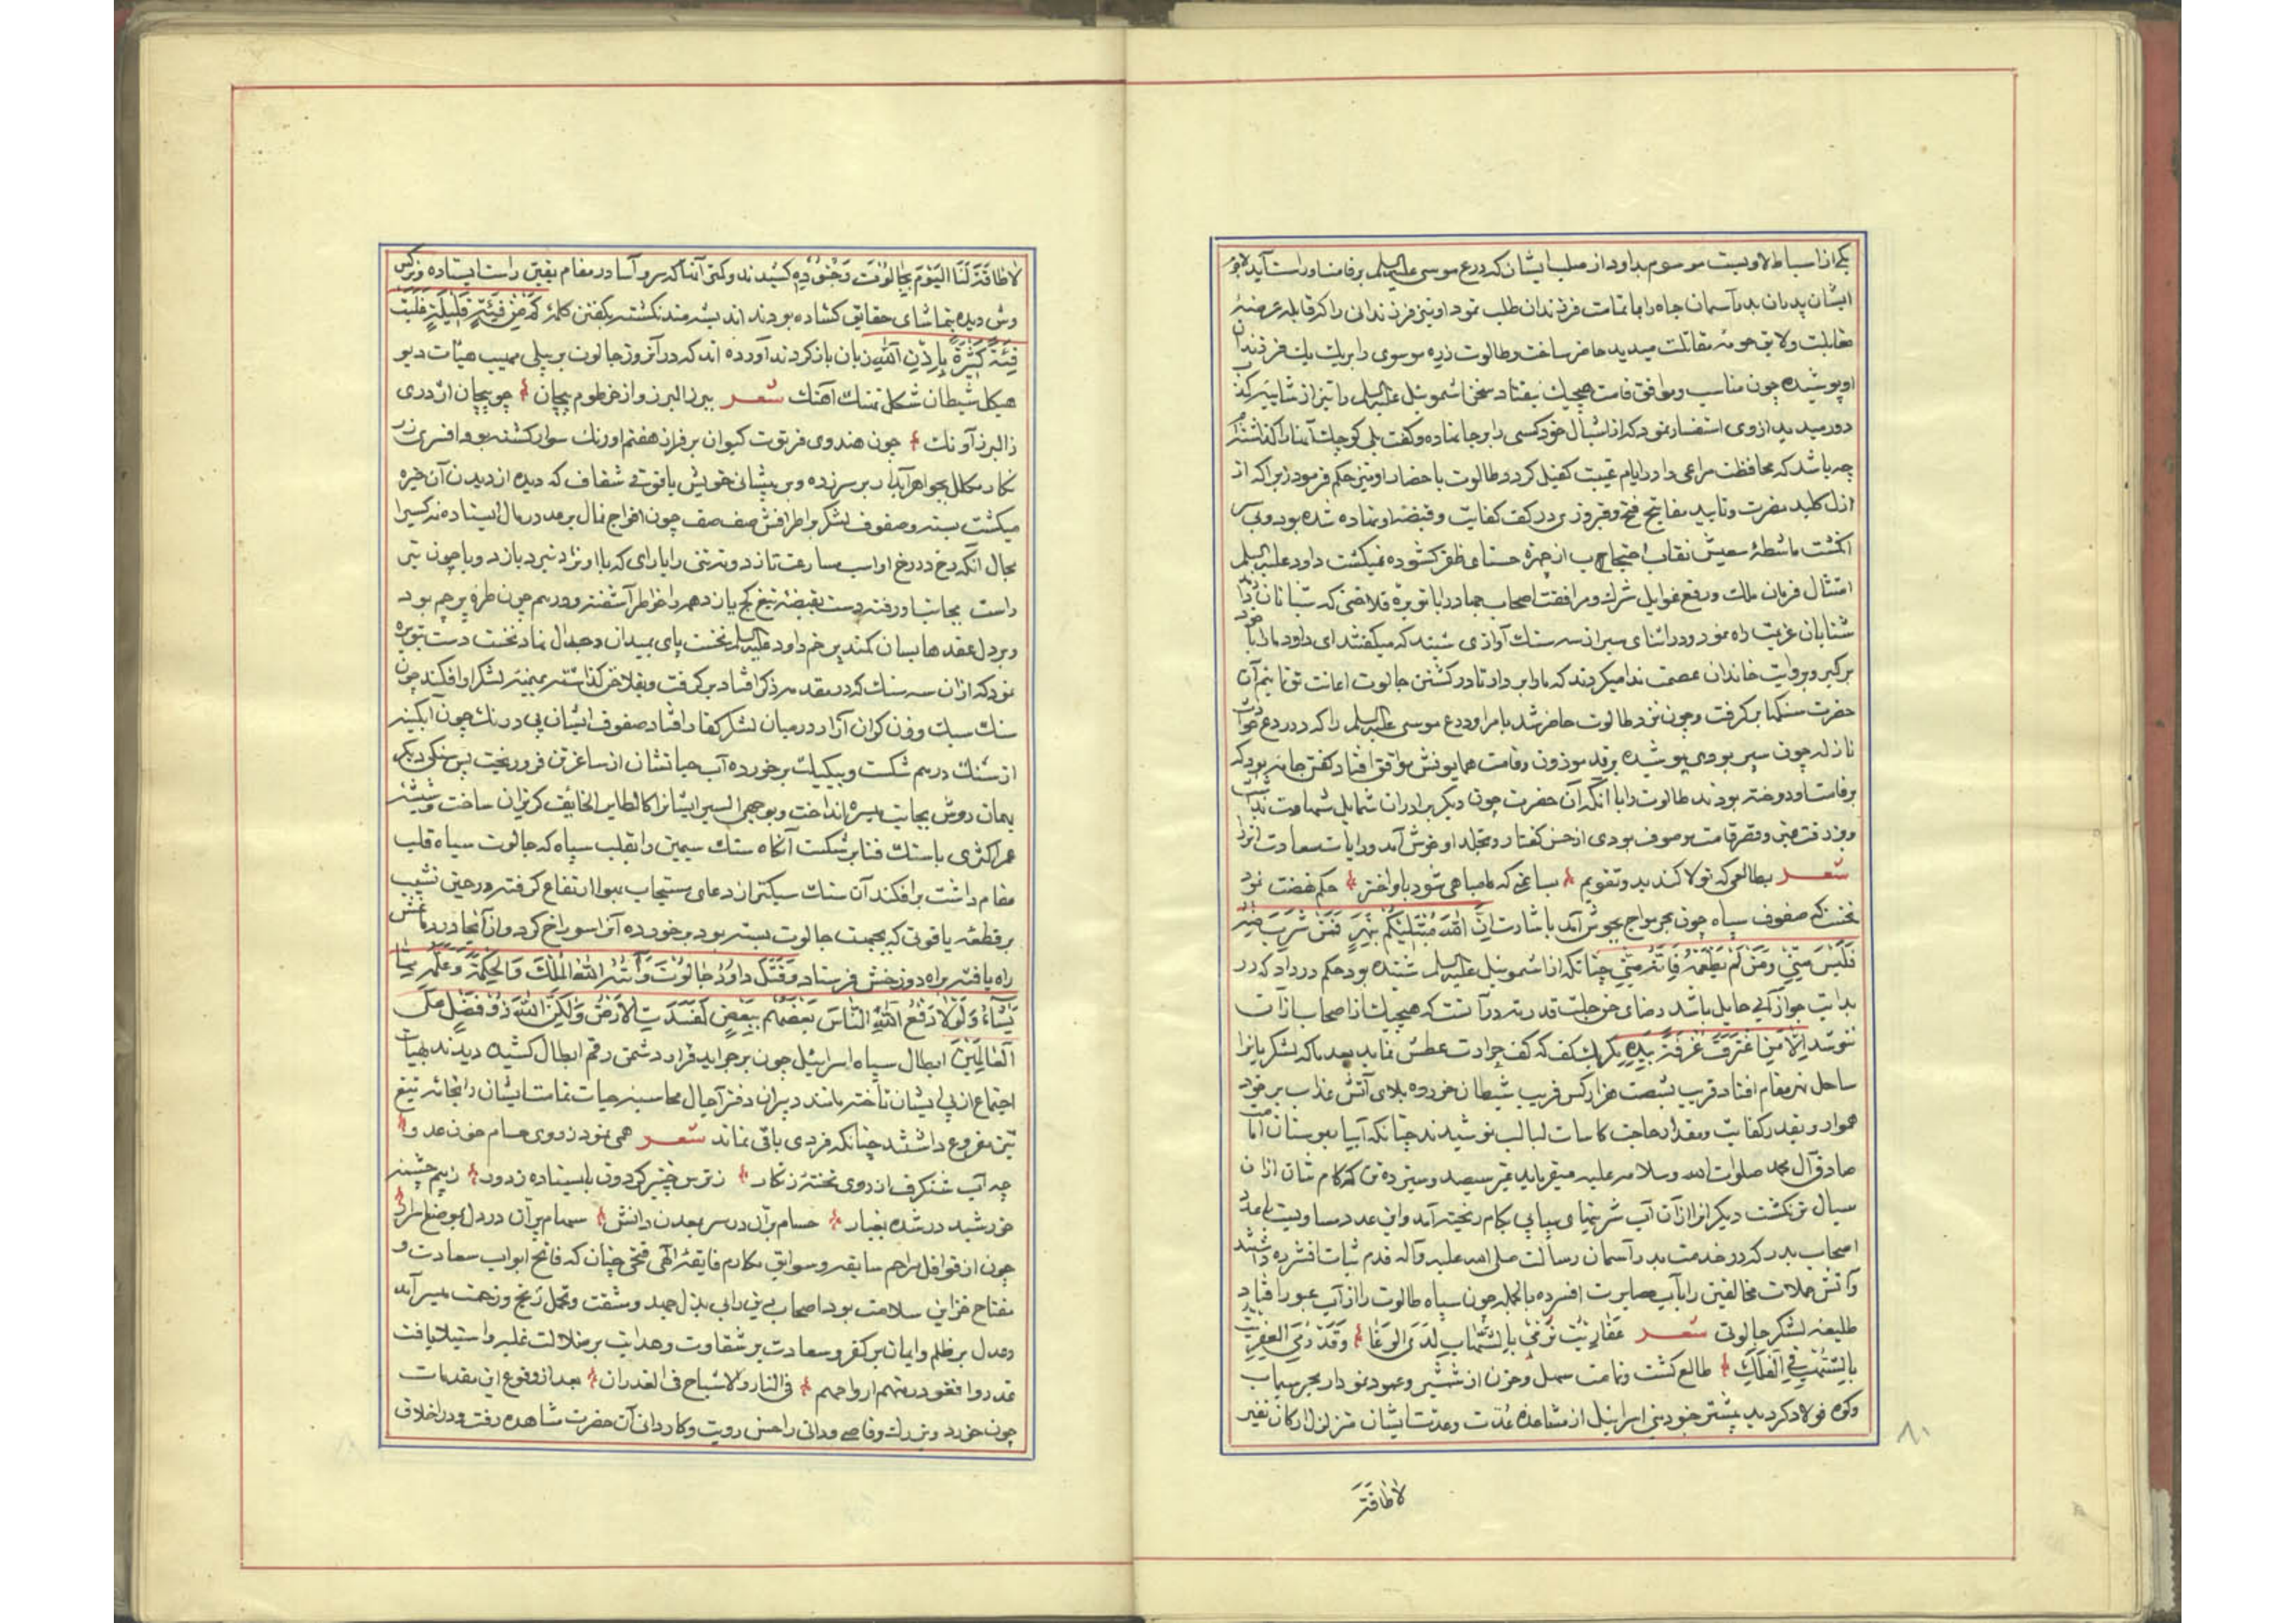 یکی از اسباط لاویست موسوم بداود از صلب ایشان که درع موسی علیه السلم بر قامت او راست آید لاجرم
ایشان پدران بد بآسمان جاه را با تمامت فرزندان طلب نمود او نیز فرزندانی را که قابل عرضهٔ
مقابلت ولایق حومهٔ مقاتلت میدید حاضر ساخت وطالوت زره موسوی را بر یک یک فرزندان
او پوشیده چون مناسب وموافق قامت هیچیک نیفتاد سخن اشموئیل علیه السلم را تیر از شایبه کذب
دور میدید از وی استفسار نمود که از اشبال خود کسی را بر جا نهاده وکفت بلی کوچک آنها را کذاشته‌ام
چه باشد که محافظت مراعی را در ایام غیبت کفیل کردد طالوت باحضار او نیز حکم فرمود زیرا که از
ازل کلید نصرت وتایید مفاتیح فتح وفیروزی در کف کفایت وقبضه او نهاده شده بود وبی سر
انکشت ماشطهٔ سعیش نقاب احتجاب از چهرهٔ حسنای ظفر کشوده نمیکشت داود علیه السلم
امتثال فرمان ملک ورفع غوایل شرک ومرافقت اصحاب جهاد را با توبره وفلاخنی که شبانان دارند
شتابان عزیمت راه نمود ودر اثنای سیر از سه سنک آوازی شنید که میکفتند ای داود ما را با خود
برکیر وبروایت خاندان عصمت ندا میکردند که ما را بردار تا در کشتن جالوت اعانت تو نمائیم آن
حضرت سنکها برکرفت وچون نزد طالوت حاضر شد بامر او درع موسی علیه السلم را که در دفع حوادث
نازله چون سپر بودی پوشیده بر قد موزون وقامت همایونش موافق افتاد کفتی جامه بود که
بر قامت او دوخته بودند طالوت را با آنکه آن حضرت چون دیکر برادران شمایل شهامت نداشت
وبزردقت متن وقصر قامت موصوف بودی از حسن کفتار وتجلد او خوش آمد ورایات سعادت افراز
شعر بطالعی که تولا کند بدو تقویم بساعتی که مباهی شود باو اختر حکم نهضت نمود
نخست که صفوف سپاه چون بحر مواج بجوش آمد باشارت اِنَّ اللهَ مُبْتَلِيكُمْ بِنَهَرٍ فَمَنْ شَرِبَ مِنْهُ
فَلَيْسَ مِنِّي وَمَنْ لَمْ يَطْعَمْهُ فَاِنَّهُ مِنِّي چنانکه از اشموئیل علیه السلم شنیده بود حکم در داد که در
بدایت جواز آبی حایل باشد رضای حق جلت قدرته در آنست که هیچیک از اصحاب از آن
ننوشد اِلَّا مَنِ اغْتَرَفَ غُرْفَةً بِيَدِهِ مکر یک کف که کف حرارت عطش نماید بعد ما که لشکریانرا
ساحل نهر مقام افتاد قریب بشصت هزار کس فریب شیطان خورده بلای آتش عذاب بر خود
هموار وبقدر کفایت ومقدار حاجت کاسات لبالب نوشیدند چنانکه آبیا بوستان امامت
صادق آل محمد صلوات الله وسلامه علیه میفرماید بغیر سیصد وسیزده تن که کام شان از آن
سیال تر نکشت دیکرانرا از آن آب شربتهای پیاپی بکام ریخته آمد واین عدد مساویست با عدد
اصحاب بدر که در خدمت بدر آسمان رسالت صلی الله علیه وآله قدم ثبات افشرده داشتند
وآتش حملات مخالفین را بآب مصابرت افسرده بالجمله چون سپاه طالوت را از آب عبور افتاد
طلیعه لشکر جالوتی شعر عَفَارِيتُ تَرْمِي بِالشِّهَابِ لَدَى الوَغَا وَقَدْ رُمِيَ العِفْرِيتُ
بِالشُّهُبِ فِي الْفَلَكِ طالع کشت وتمامت سهل وحزن از شمشیر وعمود نمودار بحر سیماب
وکوه فولاد کردید پیشتر جنود بنی اسرائیل از مشاهدهٔ عُدّت وعدت ایشان متزلزل ارکان نفیر
لاطاقة
۸۱
لَا طَاقَةَ لَنَا الْيَوْمَ بِجَالُوتَ وَجُنُودِهِ کشیدند وکمتی آنها که سرو آسا در مقام یقین راست ایستاده ونرکس
وش دیده بتماشای حقایق کشاده بودند اندیشه مند نکشته بکفتن کلمهٔ كَمْ مِنْ فِئَةٍ قَلِيلَةٍ غَلَبَتْ
فِئَةً كَثِيرَةً بِاِذْنِ اللهِ زبان باز کردند آورده اند که در آن روز جالوت بر پیلی مهیب هیأت دیو
هیکل شیطان شکل نهنک آهنک شعر ببرز البرز واز خرطوم پیچان چو پیچان اژدری
ز البرز آونک چون هندوی فرتوت کیوان بر فراز هفتم اورنک سوار کشته بود افسری زر
نکار مکلل بجواهر آبدار بر سر زده وبر پیشانی خویش یاقوتی شفاف که دیده از دیدن آن خیره
میکشت بسته وصفوف لشکر بر اطرافش صف صف چون افواج نمال بر عدد رمال ایستاده نه کسیرا
مجال آنکه رخ در رخ او اسب مسارعت تازد ونه تنی را یارای که با او نرد نبرد بازد وبا چون تیر
راست بجانب او رفته دست بقبضه تیغ کج یازد همه را خواطر آشفته ودرهم چون طره پرچم بود
وبر دل عقدها بسان کمند پر خم داود علیه السلم نخست پای بمیدان وجدال نهاد نخست دست بتوبره
نمود که از آن سه سنک که در مقدمه ذکر افتاد برکرفت وبفلاخن کذاشته بمیمنه لشکر او افکند چون
سنک سبک وزن کران آزار در میان لشکر کفار افتاد صفوف ایشان بی درنک چون آبکینه
از سنک درهم شکست وبیکیک بر خورده آب حیاتشان از ساغر تن فرو ریخت پس سنکی دیکر
بهمان روش بجانب میسره انداخت وبوجهی السیر ایشانرا کالطایر الخایف کریزان ساخت وشیشه
عمر اکثری با سنک فنا بر شکست آنکاه سنک سیمین را بقلب سپاه که جالوت سیاه قلب
مقام داشت بر افکند آن سنک سبکتر از دعای مستجاب بهوا ارتفاع کرفته در حین نشیب
بر قطعه یاقوتی که بجبهت جالوت بسته بود بر خورده آنرا سوراخ کرد واز آنجا در دماغش
راه یافته براه دوزخش فرستاد وَقَتَلَ دَاوُدُ جَالُوتَ وَآتَاهُ اللهُ الْمُلْكَ وَالْحِكْمَةَ وَعَلَّمَهُ مِمَّا
يَشَاءُ وَلَوْلَا دَفْعُ اللهِ النَّاسَ بَعْضَهُمْ بِبَعْضٍ لَفَسَدَتِ الْاَرْضُ وَلَكِنَّ اللهَ ذُو فَضْلٍ عَلَى
الْعَالَمِينَ ابطال سپاه اسرائیل چون بر جراید قرار دشمن رقم ابطال کشیده دیدند بهیأت
اجتماع از پی ایشان تاخته مانند دبیران دفتر آجال محاسبه حیات تمامت ایشان را بخاتمه تیغ
تیز مفروغ داشتند چنانکه فردی باقی نماند شعر همی نمود ز روی حسام خون عدو
چه آب شنکرف از روی تختهٔ زنکار ز ترس چنبر کردون بایستاده ز دور ز بیم چشمه
خورشید در شده بغبار حسام بران در سر بمعدن دانش سهام پران در دل بموضع اسرار
چون از قوافل مراحم سابقه وسوابق مکارم فایقهٔ الهی فتحی چنان که فاتح ابواب سعادت و
مفتاح خزاین سلامت بود اصحاب دین را بی بذل جهد ومشقت وتحمل رنج وزحمت میسر آمد
وعدل بر ظلم وایمان بر کفر وسعادت بر شقاوت وهدایت بر ضلالت غلبه واستیلا یافت
غدروا فغودرتهم ارواحهم فی النار والاشباح فی الغدران بعد از وقوع این مقدمات
چون خورد وبزرک وقاصی ودانی را حسن رویت وکاردانی آن حضرت مشاهده رفت ودر اخلاق